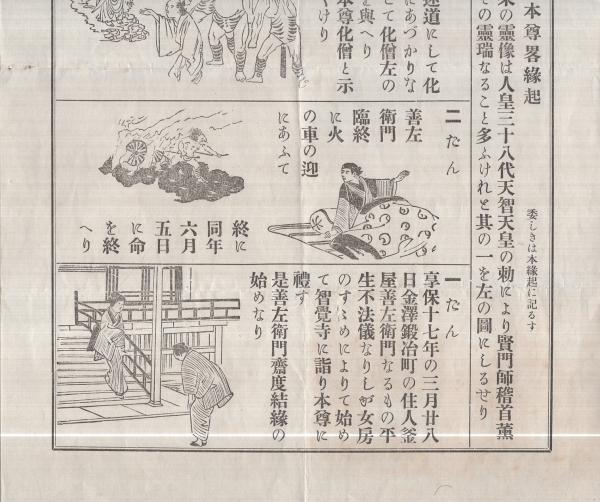 本尊畧緣起
委しきは本緣起に記るす
来の靈像は人皇三十八代天智天皇の勅により賢門師稽首薫
その靈瑞なること多ふけれと其の一を左の圖にしるせり
一たん
享保十七年の三月廿八
日金澤鍛冶町の住人釜
屋善左衛門なるもの平
生不法儀なりしが女房
のすゝめによりて始め
て智覺寺に詣り本尊に
禮す
是善左衛門齋度結緣の
始めなり
二たん
善左
衛門
臨終
に火
の車の迎
にあふて
終に
同年
六月
五日
に命
を終
へり
道にして化
にあづかりな
とて化僧左の
を與へり
本尊化僧と示
くけり